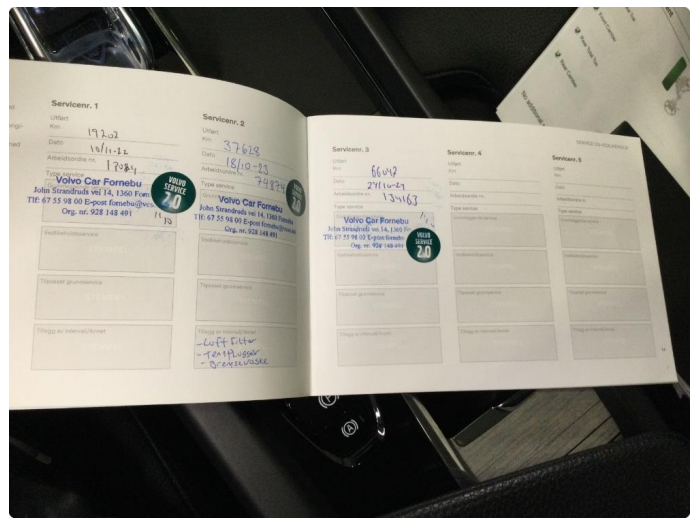 Servicenr. 1
Utført
Km 19202
Dato 10/11-22
Arbeidsordre nr. 17084
Type service
Volvo Car Fornebu
John Strandruds vei 14, 1360 Forn
Tlf: 67 55 98 00 E-post fornebu@vcs
Org. nr. 928 148 491
VOLVO
SERVICE
2.0
Vedlikeholdsservice
Tilpasset grunnservice
Tillegg av intervall/Annet
Servicenr. 2
Utført
Km 37628
Dato 18/10-23
Arbeidsordre nr. 74874
Type service
Volvo Car Fornebu
John Strandruds vei 14, 1360 Fornebu
Tlf: 67 55 98 00 E-post fornebu@vcs
Org. nr. 928 148 491
2.0
Vedlikeholdsservice
Tilpasset grunnservice
Tillegg av intervall/Annet
- Luft filter
- Bremsevæske
Servicenr. 3
Utført
Km
Dato
Arbeidsordre nr. 134163
Type service
Volvo Car Fornebu
John Strandruds vei 14, 1360 Fo
Tlf: 67 55 98 00 E-post fornebu
Org. nr. 928 148 491
VOLVO
SERVICE
2.0
Vedlikeholdsservice
Tilpasset grunnservice
Tillegg av intervall/Annet
Servicenr. 4
Utført
Km
Dato
Arbeidsordre nr.
Type service
Grunnleggende service
Vedlikeholdsservice
Tilpasset grunnservice
Tillegg av intervall/Annet
Servicenr. 5
Utført
Km
Dato
Arbeidsordre nr.
Type service
Grunnleggende service
Vedlikeholdsservice
Tilpasset grunnservice
Tillegg av intervall/Annet